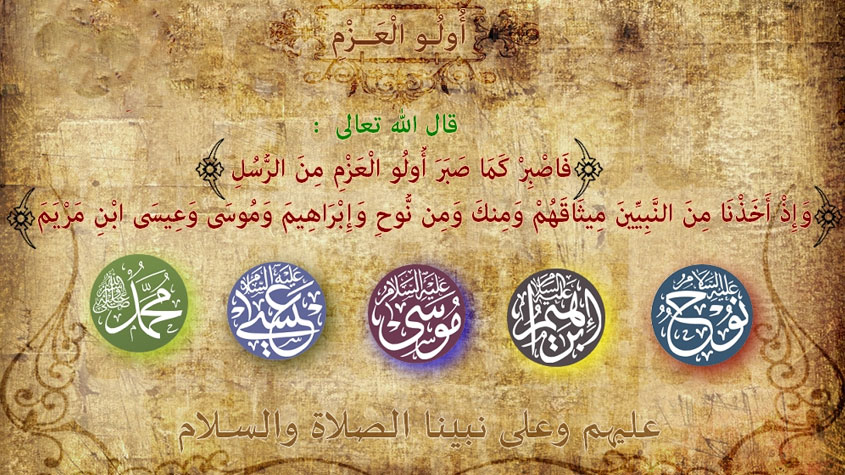 أُولُـو الْعَــزْم
قال الله تعالى :
﴿فَاصْبِرْ كَمَا صَبَرَ أُولُو الْعَزْمِ مِنَ الرُّسُلِ﴾
﴿وَإِذْ أَخَذْنَا مِنَ النَّبِيِّينَ مِيثَاقَهُمْ وَمِنكَ وَمِن نُّوحٍ وَإِبْرَاهِيمَ وَمُوسَى وَعِيسَى ابْنِ مَرْيَمَ﴾
نوح عليه السلام
إبراهيم عليه السلام
موسى عليه السلام
عيسى عليه السلام
محمد صلى الله عليه وسلم
عليهم وعلى نبينا الصلاة والسلام